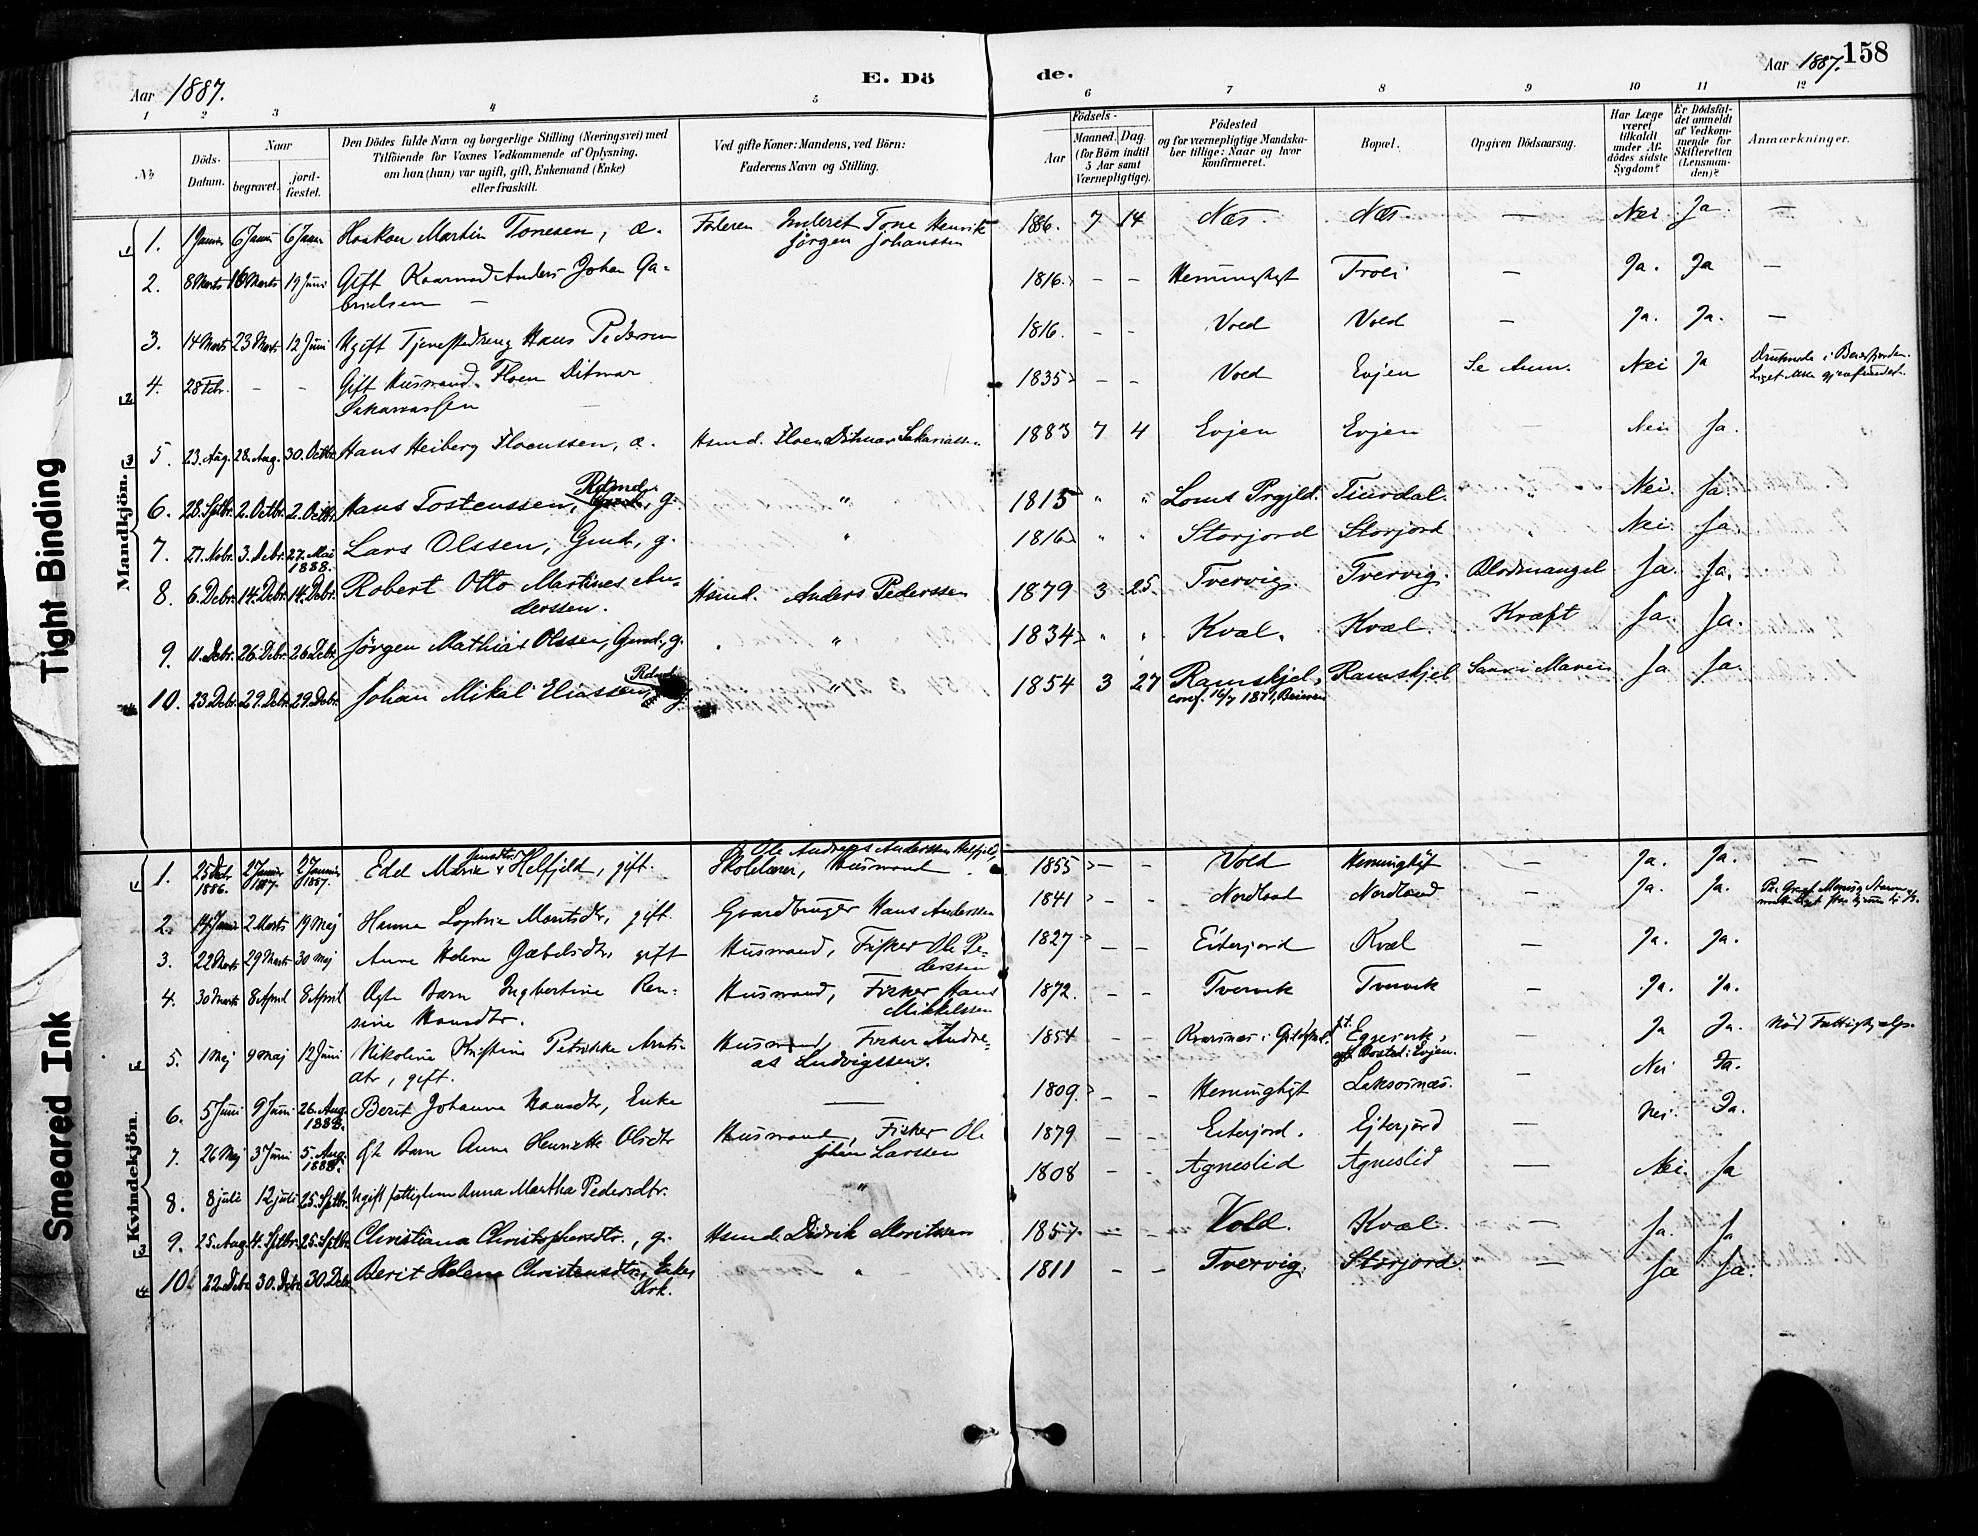 Aar 1887.
E. Dö
de.
Aar 1887.
158
1 2 3 4 5 6 7 8 9 10 11 12
No
Döds-Datum.
Naar
begravet.
jordfæstet.
Den Dödes fulde Navn og borgerlige Stilling (Næringsvei) med
Tilföiende for Voxnes Vedkommende af Oplysning,
om han (hun) var ugift, gift, Enkemand (Enke)
eller fraskilt.
Ved gifte Koner: Mandens, ved Börn:
Faderens Navn og Stilling.
Födsels-
Aar
Maaned. Dag.
(for Börn indtil
5 Aar samt
Værnepligtige).
Födested
og for værnepligtige Mandska-
ber tillige: Naar og hvor
konfirmeret.
Bopæl.
Opgiven Dödsaarsag.
Har Læge
været
tilkaldt
under Af-
dödes sidste
Sygdom?
Er Dödsfal-
det anmeldt
af Vedkom-
mende for
Skifteretten
(Lensman-
den)?
Anmærkninger.
Mandkjön.
1. 1 Januar 6 Janu 6 Janu Haakon Martin Tonesen, æ. Faderen Inderst Tone Henrik Jörgen Johanssen 1886. 7 14 Næs. Næs. — Nei Ja —
2. 8 Marts 16 Marts 19 Juni Gift Kaarmand Anders Johan Gabrielsen — 1816. - - Hemminghyt Troli — Ja. Ja —
3. 14 Marts 23 Marts 12 Juni Ugift Tjenestedreng Hans Pedersen 1816. - - Vold Vold — Ja. Ja. —
4. 28 Febr. - - Gift Husmand Floen Ditmar Sakariassen 1835 - - Vold Evjen Se Anm. Nei Ja Druknede i Beierfjorden. Liget ikke gjenfundet.
5. 23. Aug. 28. Aug. 30. Octbr. Hans Heiberg Floenssen, æ. Hsmd. Floen Ditmar Sakariassen 1883 7 4 Evjen Evjen Nei Ja.
6. 28. Septbr. 2. Octbr. 2. Octbr. Hans Tostenssen, Rdmd., g. " 1815 " " Loms Prgjld. Tiurdal. " Nei. Ja.
7. 27. Nobr. 3. Debr. 27. Mai 1888. Lars Olssen, Gmd., g. " 1816 " " Storjord Storjord " Nei Ja.
8. 6. Debr. 14. Debr. 14. Debr. Robert Otto Martines Anderssen. Hsmd. Anders Pederssen 1879 3 25. Tvervig. Tvervig. Blodmangel Ja. Ja.
9. 11. Debr. 26. Debr. 26. Debr. Jörgen Mathias Olssen, Gmd., g. " 1834 " " Kvæl. Kvæl. Kræft Ja. Ja.
10. 23. Debr. 29. Debr. 29. Debr. Johan Mikal Eliassen, Rdmd. g. " 1854 3 27 Ramskjel, conf. 16/7 1871, Beieren Ramskjel Saar i Maven Ja Ja.
Kvindekjön.
1. 25 Debr. 1886. 2 Januar 1887. 2 Januar 1887. Edel Marie Jensdtr. Helfjeld, gift. Ole Andreas Anderssen Helfjeld, Skolelærer, Husmand 1855 - - Vold Hemminghyt — Ja. Ja. —
2. 14 Januar 2 Marts 19 Maj Hanna Sophie Moritsdtr, gift. Gaardbruger Hans Anderssen 1841 - - Nordland Nordland — Ja. Ja.
3. 22 Marts 29 Marts 30 Maj Anne Helene Gabelsdtr, gift Husmand, Fisker Ole Pederssen 1827 - - Eiterjord Kvæl — Ja. Ja.
4. 30 Marts 8 April 8 April Ægte Barn Ingbertine Rensine Hansdtr. Husmand, Fisker Hans Mikkelssen 1872. - - Tvervik Tvervik — Ja. Ja.
5. 1 Maj 9 Maj 12 Juni Nikoline Kristine Petrikke Arntsdtr, gift. Husmand, Fisker Andreas Ludvigssen. 1854 Kvarsnæs i Gildeskaal Egnevik, Bosted: Evjen. Ja Ja. Nöd Fattighjelp.
6. 5 Juni 9 Juni 26. Aug. 1888. Berit Johanne Hansdtr, Enke — 1809. - - Hemminghyt Laksosnæs. — Nei Ja.
7. 26 Maj 3 Juni 5. Aug. 1888. Gt Barn Anne Henrikke Olsdtr Husmand, Fisker Ole Johan Larssen 1879 - - Eiterjord. Ejterjord — Nei. Ja.
8. 8 juli 12 juli 25. Septbr. Ugift fattiglem Anna Martha Pedersdtr. " 1808 - - Agneslid Agneslid — Nei. Ja
9. 25. Aug. 4. Septbr. 25. Septbr. Christiana Christophersdtr., g. Hsmd. Didrik Moritssen 1857. - - Vold. Kvæl. — Ja. Ja
10. 22. Debr. 30. Debr. 30. Debr. Berit Helena Christensdtr., Enke, Krk. " 1811 - - Tvervig. Storjord. — Ja Ja.
Tight Binding
Smeared Ink